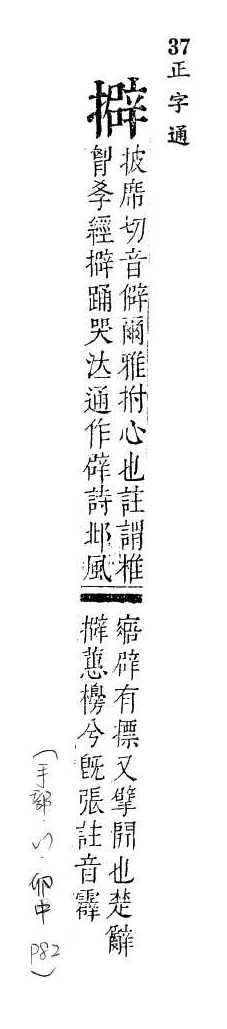 37 正字通
擗
披席切音僻爾雅拊心也註謂椎
胷孝經擗踊哭泣通作辟詩邶風
寤辟有標又擘開也楚辭
擗蕙櫋兮既張註音霹
(手部.卯中 P82)